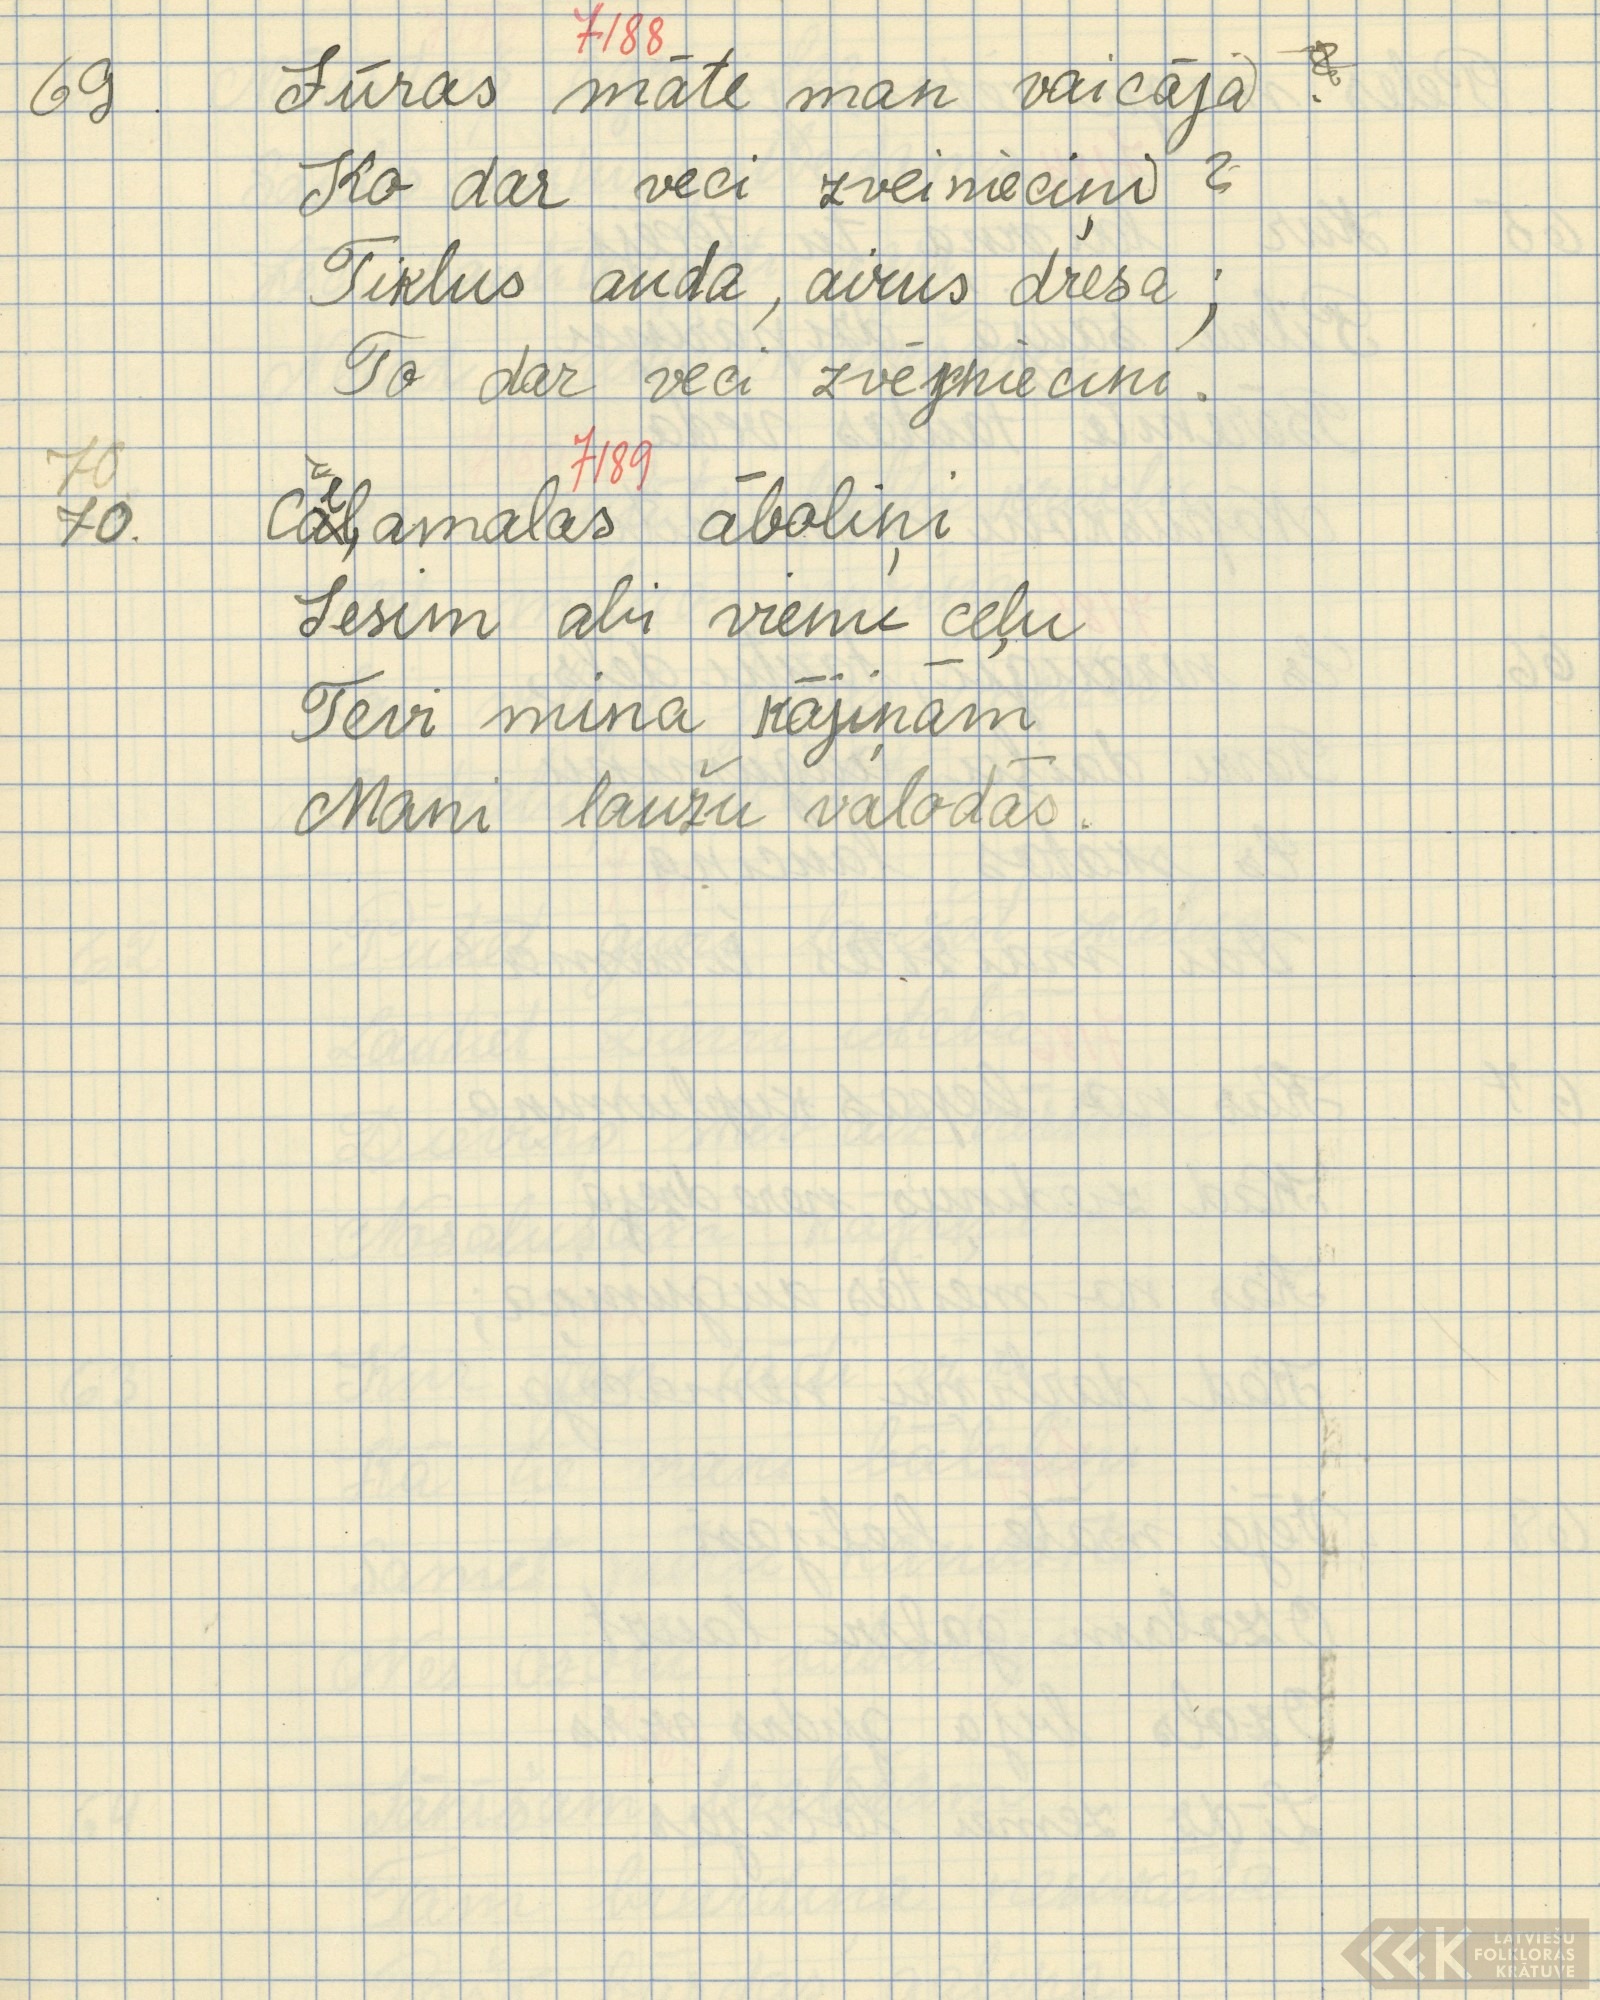 7188
69. Jūras māte man vaicāja:
Ko dar veci zveinieciņi?
Tiklus auda, airus dresa;
To dar veci zvējniecini.
70
7189
70. Ceļamalas āboliņi
Jesim abi vienu ceļu
Tevi mina kājiņām
Mani laužu valodās.
LATVIEŠU
FOLKLORAS
KRĀTUVE